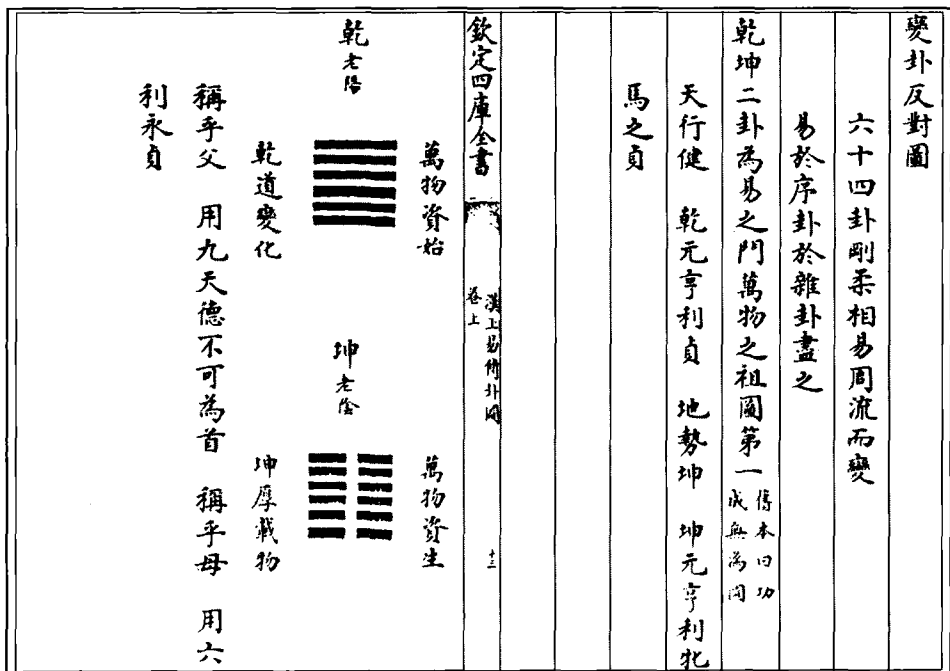 變卦反對圖
六十四卦剛柔相易周流而變
易於序卦於雜卦盡之
乾坤二卦為易之門萬物之祖圖第一
舊本曰功
成無為圖
天行健 乾元亨利貞 地勢坤 坤元亨利牝
馬之貞
欽定四庫全書
漢上易傳卦圖
卷上
十三
萬物資始
乾老陽
乾道變化
萬物資生
坤老陰
坤厚載物
稱乎父 用九天德不可為首 稱乎母 用六
利永貞